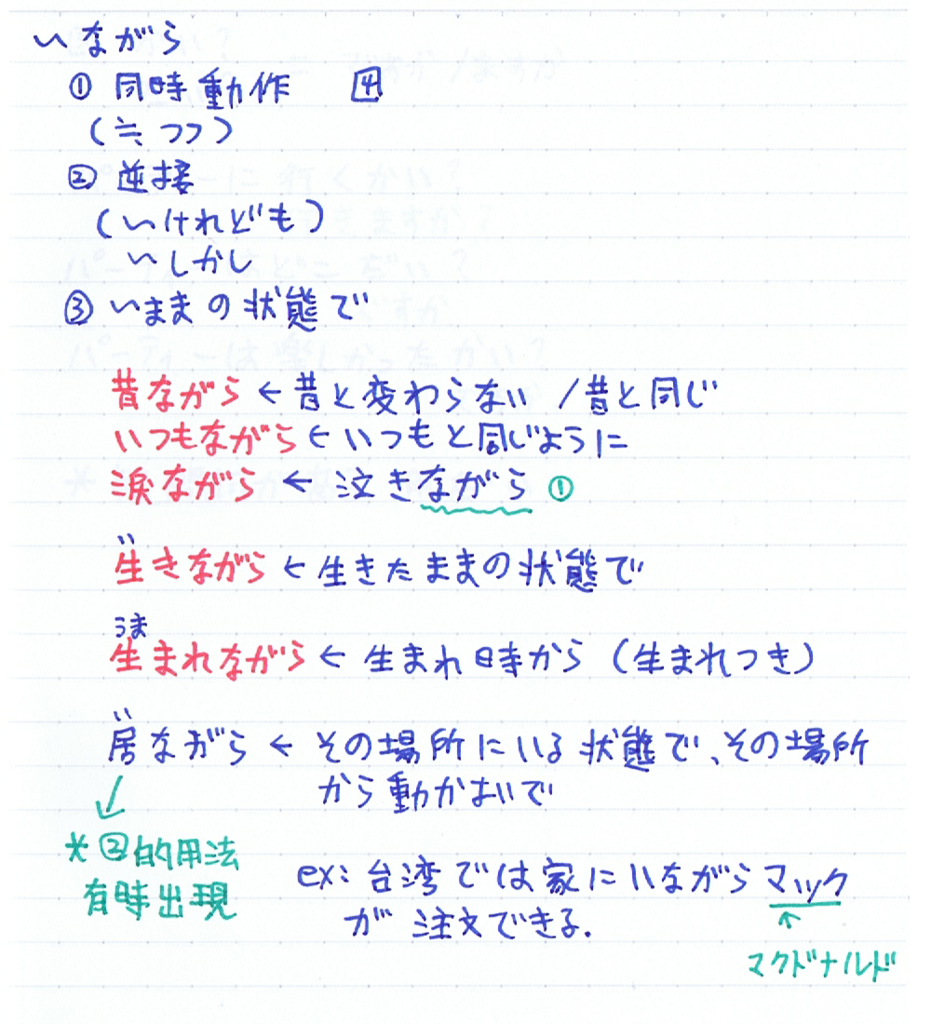 〜ながら
① 同時動作 4
(≒つつ)
② 逆接
(〜けれども)
〜しかし
③ 〜ままの状態で
昔ながら ← 昔と変わらない / 昔と同じ
いつもながら ← いつもと同じように
涙ながら ← 泣きながら ①
い
生きながら ← 生きたままの状態で
うま
生まれながら ← 生まれ時から (生まれつき)
い
居ながら ← その場所にいる状態で、その場所
から動かないで
*②的用法
有時出現
ex: 台湾では家にいながらマック
が注文できる.
マクドナルド